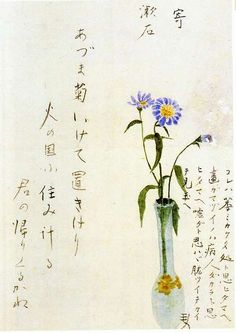 寄
漱石
コレハ萎ミカケタ処ト思ヒタマヘ
画ガマヅイノハ病人ダカラト思
ヒタマヘ嘘ダト思ハバ肱ツイテカイ
テ見玉ヘ
あづま菊いけて置きけり
火の国に住みける
君の帰りくるかね